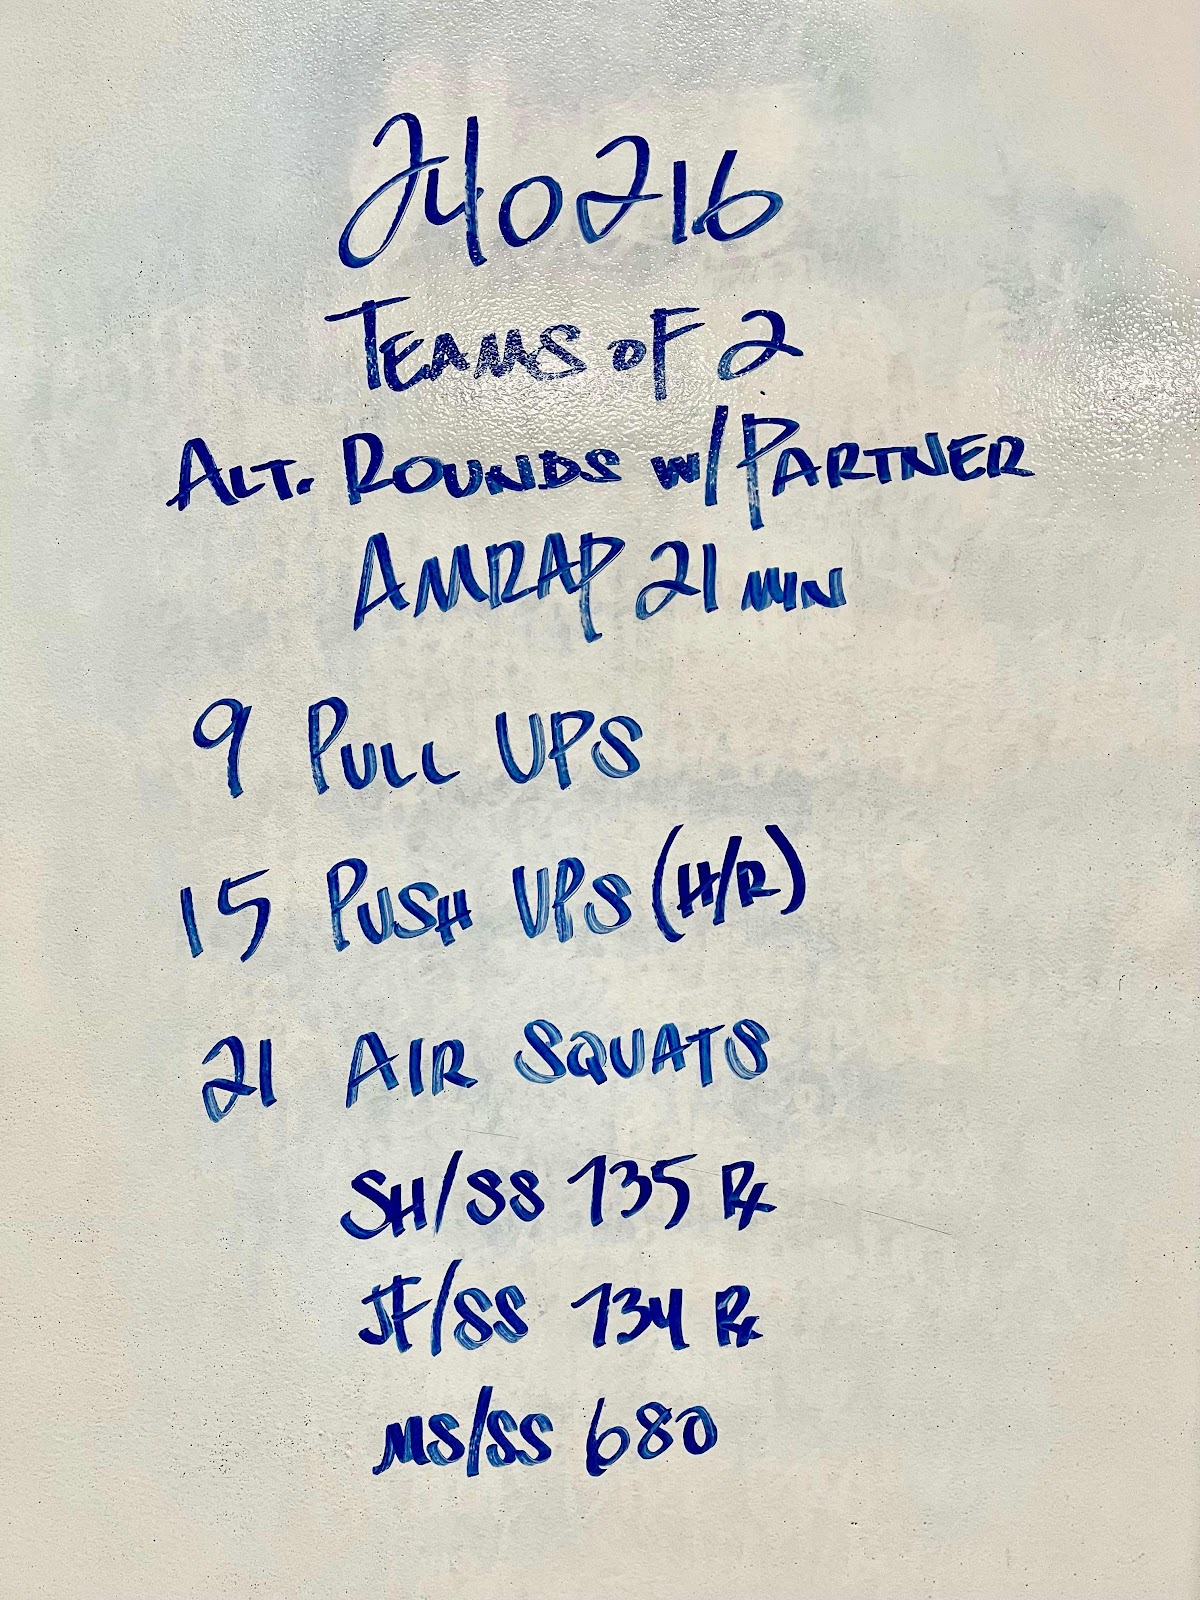 240216
TEAMS OF 2
ALT. ROUNDS W/PARTNER
AMRAP 21 MIN
9 PULL UPS
15 PUSH UPS (H/R)
21 AIR SQUATS
SH/SS 735 Rx
JF/SS 734 Rx
MS/SS 680